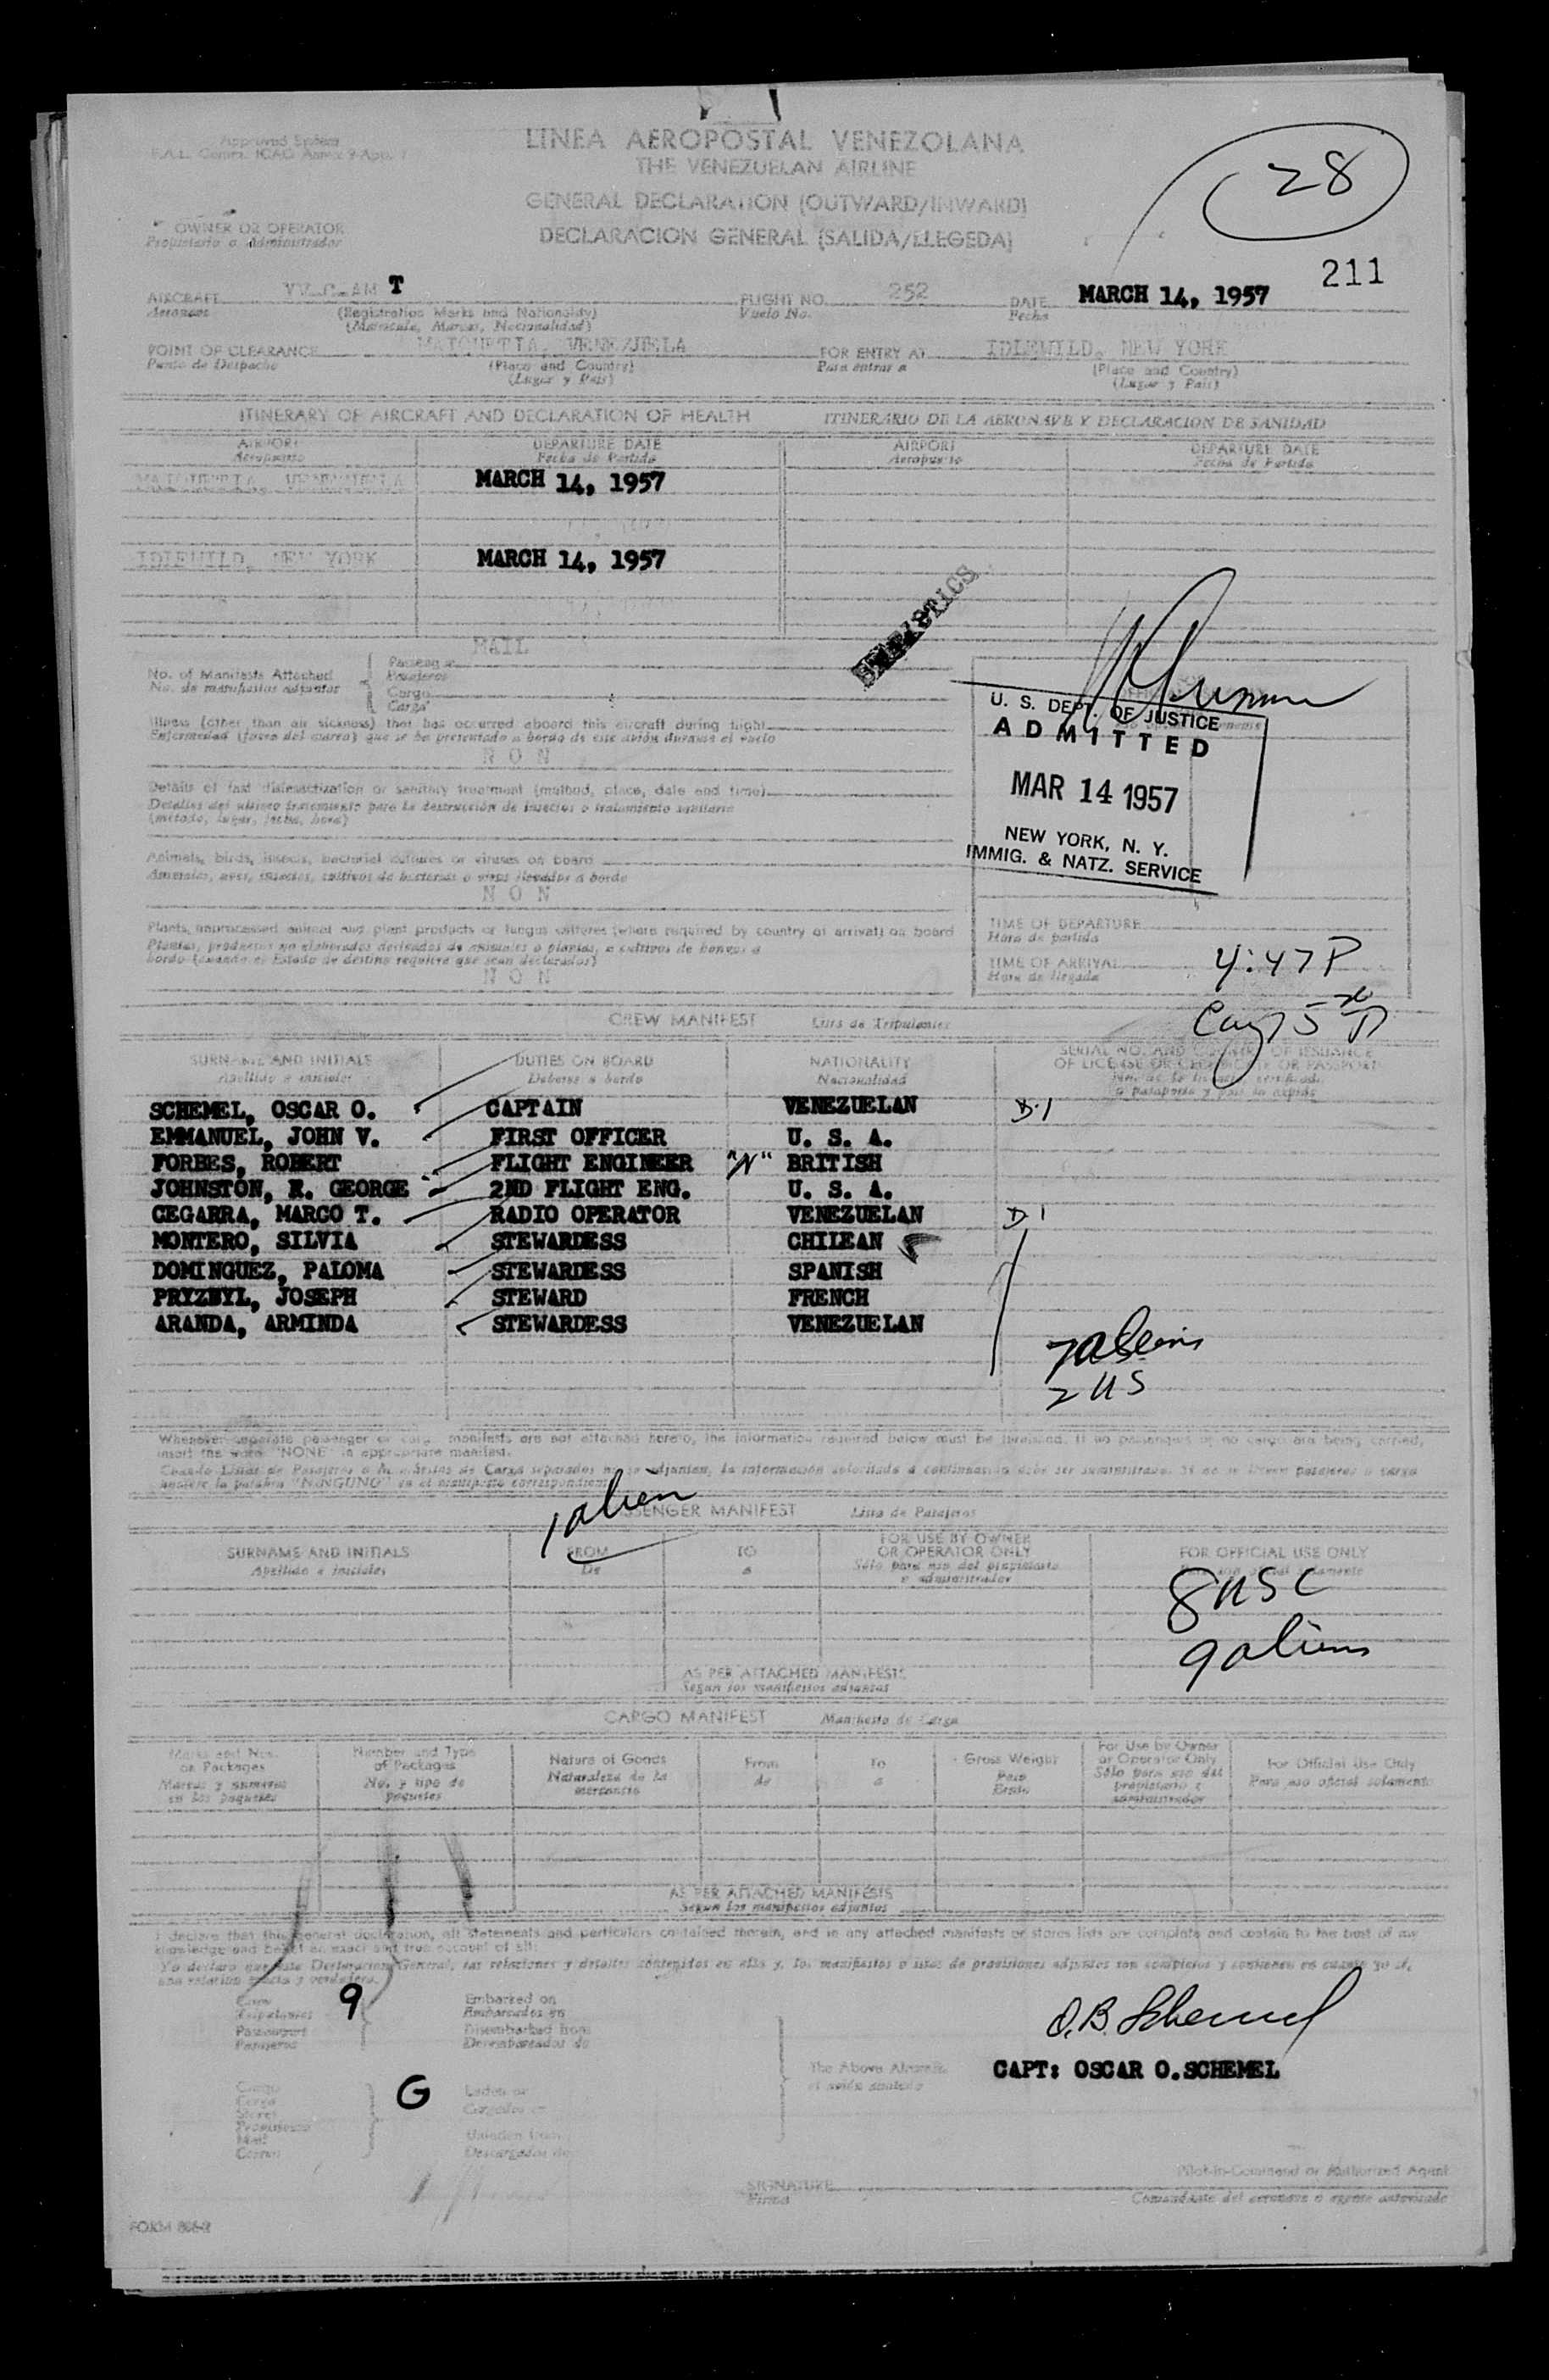 Approved System
F.A.L. Comm. ICAO Annex 9-App. 1
LINEA AEROPOSTAL VENEZOLANA
THE VENEZUELAN AIRLINE
GENERAL DECLARATION (OUTWARD/INWARD)
DECLARACION GENERAL (SALIDA/LLEGEDA)
28
211
OWNER OR OPERATOR
Propietario o Administrador
AIRCRAFT YV-C-AM T FLIGHT NO. 252 DATE MARCH 14, 1957
Aeronave (Registration Marks and Nationality) Vuelo No. Fecha
(Matricula, Marcas, Nacionalidad)
POINT OF CLEARANCE MAIQUETIA, VENEZUELA FOR ENTRY AT IDLEWILD, NEW YORK
Punto de Despacho (Place and Country) Para entrar a (Place and Country)
(Lugar y Pais) (Lugar y Pais)
ITINERARY OF AIRCRAFT AND DECLARATION OF HEALTH ITINERARIO DE LA AERONAVE Y DECLARACION DE SANIDAD
AIRPORT DEPARTURE DATE AIRPORT DEPARTURE DATE
Aeropuerto Fecha de Partida Aeropuerto Fecha de Partida
MAIQUETIA, VENEZUELA MARCH 14, 1957
IDLEWILD, NEW YORK MARCH 14, 1957
MAIL
No. of Manifests Attached
No. de manifiestos adjuntos
Passenger
Pasajeros
Cargo
Carga
Illness (other than air sickness) that has occurred aboard this aircraft during flight
Enfermedad (fuera del mareo) que se ha presentado a bordo de este avión durante el vuelo
N O N
Details of last disinsectization or sanitary treatment (method, place, date and time)
Detalles del ultimo tratamiento para la destrucción de insectos o tratamiento sanitario
(método, lugar, fecha, hora)
Animals, birds, insects, bacterial cultures or viruses on board
Animales, aves, insectos, cultivos de bacterias o virus llevados a bordo
N O N
Plants, unprocessed animal and plant products or fungus cultures (where required by country of arrival) on board
Plantas, productos no elaborados derivados de animales o plantas, o cultivos de hongos a
bordo (cuando el Estado de destino requiere que sean declarados)
N O N
U. S. DEPT. OF JUSTICE
ADMITTED
MAR 14 1957
NEW YORK, N. Y.
IMMIG. & NATZ. SERVICE
TIME OF DEPARTURE
Hora de partida
TIME OF ARRIVAL 4:47 P
Hora de llegada
CREW MANIFEST Lista de Tripulantes
SURNAME AND INITIALS DUTIES ON BOARD NATIONALITY SERIAL NO. AND COUNTRY OF ISSUANCE
OF LICENSE OR CERTIFICATE OR PASSPORT
Apellido e iniciales Deberes a bordo Nacionalidad
SCHEMEL, OSCAR O. CAPTAIN VENEZUELAN D-1
EMMANUEL, JOHN V. FIRST OFFICER U. S. A.
FORBES, ROBERT FLIGHT ENGINEER "N" BRITISH
JOHNSTON, R. GEORGE 2ND FLIGHT ENG. U. S. A.
CEGARRA, MARCO T. RADIO OPERATOR VENEZUELAN D 1
MONTERO, SILVIA STEWARDESS CHILEAN
DOMINGUEZ, PALOMA STEWARDESS SPANISH
PRYZBYL, JOSEPH STEWARD FRENCH
ARANDA, ARMINDA STEWARDESS VENEZUELAN
7 aliens
2 US
Whenever separate passenger or cargo manifests are not attached hereto, the information required below must be furnished. If no passengers or no cargo are being carried,
insert the word "NONE" in appropriate manifest.
Cuando Listas de Pasajeros o Manifiestos de Carga separados no se adjuntan, la información solicitada a continuación debe ser suministrada. Si no se llevan pasajeros o carga
anótese la palabra "NINGUNO" en el manifiesto correspondiente.
1 alien
PASSENGER MANIFEST Lista de Pasajeros
SURNAME AND INITIALS FROM TO FOR USE BY OWNER
OR OPERATOR ONLY FOR OFFICIAL USE ONLY
Apellido e iniciales De a Sólo para uso del propietario
o administrador
8 USC
9 aliens
AS PER ATTACHED MANIFESTS
Segun los manifiestos adjuntos
CARGO MANIFEST Manifiesto de Carga
Marks and Nos.
on Packages
Marcas y numeros
en los paquetes
Number and Type
of Packages
No. y tipo de
paquetes
Nature of Goods
Naturaleza de la
mercancia
From
de
To
a
Gross Weight
Peso
Bruto
For Use by Owner
or Operator Only
Sólo para uso del
propietario o
administrador
For Official Use Only
Para uso oficial solamente
AS PER ATTACHED MANIFESTS
Segun los manifiestos adjuntos
I declare that this general declaration, all statements and particulars contained therein, and in any attached manifests or stores lists are complete and contain to the best of my
knowledge and belief an exact and true account of all:
Yo declaro que esta Declaracion General, las relaciones y detalles contenidos en ella y, los manifiestos o listas de provisiones adjuntos son completos y contienen en cuanto yo sé,
una relacion exacta y verdadera.
Crew 9
Tripulantes
Passengers
Pasajeros
Embarked on
Embarcados en
Disembarked from
Desembarcados de
Cargo
Carga
Stores
Mail
Correo
G
Laden on
Cargados en
Unladen from
Descargados de
The Above Aircraft
el avión aludido
O.B. Schemel
CAPT: OSCAR O.SCHEMEL
SIGNATURE
Firma
Pilot-in-Command or Authorized Agent
Comandante del aeronave o agente autorizado